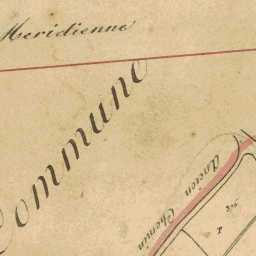 Meridienne
Commune
Ancien Chemin